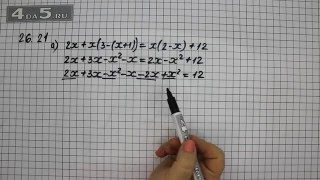 4DA5.RU
26.21
а) 2x+x(3-(x+1))=x(2-x)+12
2x+3x-x²-x=2x-x²+12
2x+3x-x²-x-2x+x²=12